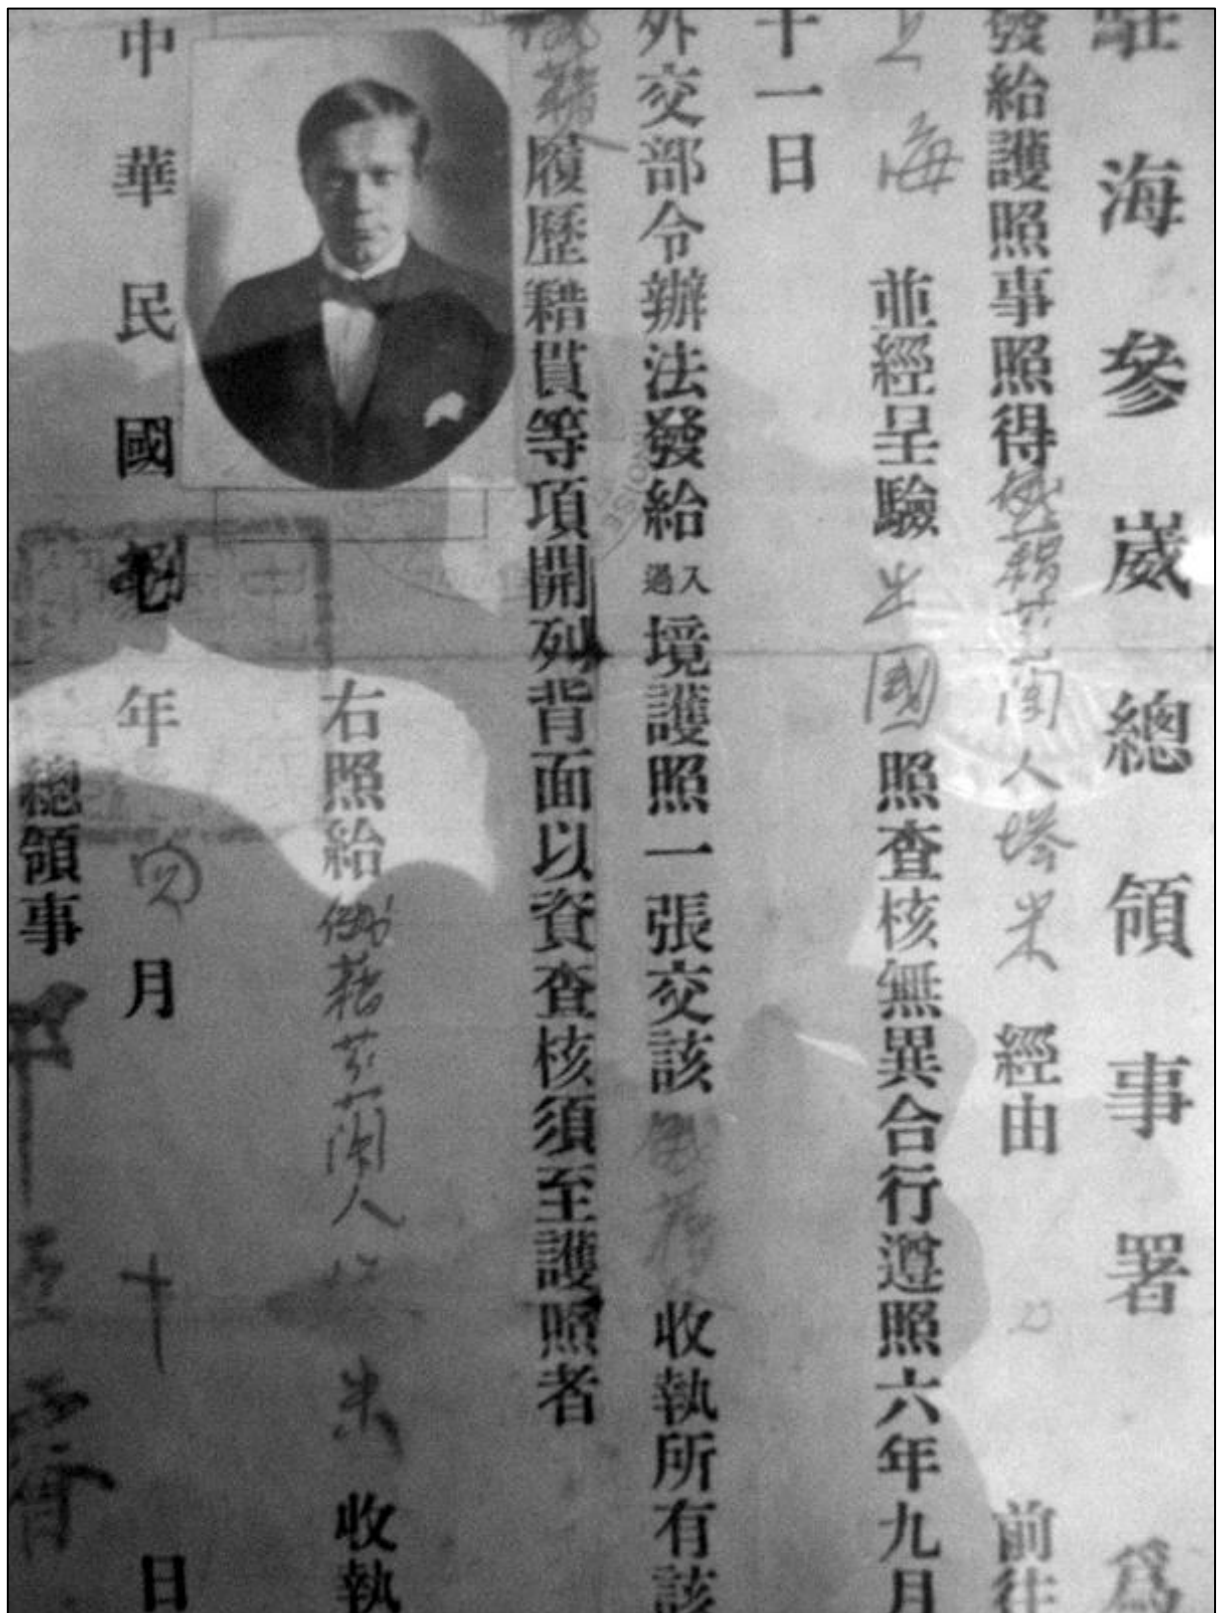 駐海參崴總領事署 爲
發給護照事照得俄籍芬蘭人塔米 經由 前往
上海 並經呈驗出國照查核無異合行遵照六年九月
十一日
外交部令辦法發給入過境護照一張交該俄籍 收執所有該
俄籍人履歷籍貫等項開列背面以資查核須至護照者
右照給俄籍芬蘭人塔米 收執
中華民國七年四月十日
總領事